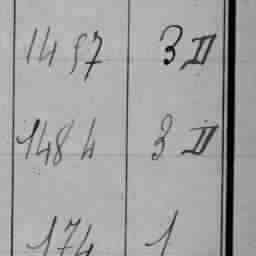 1457 3 II
1484 3 II
174 1